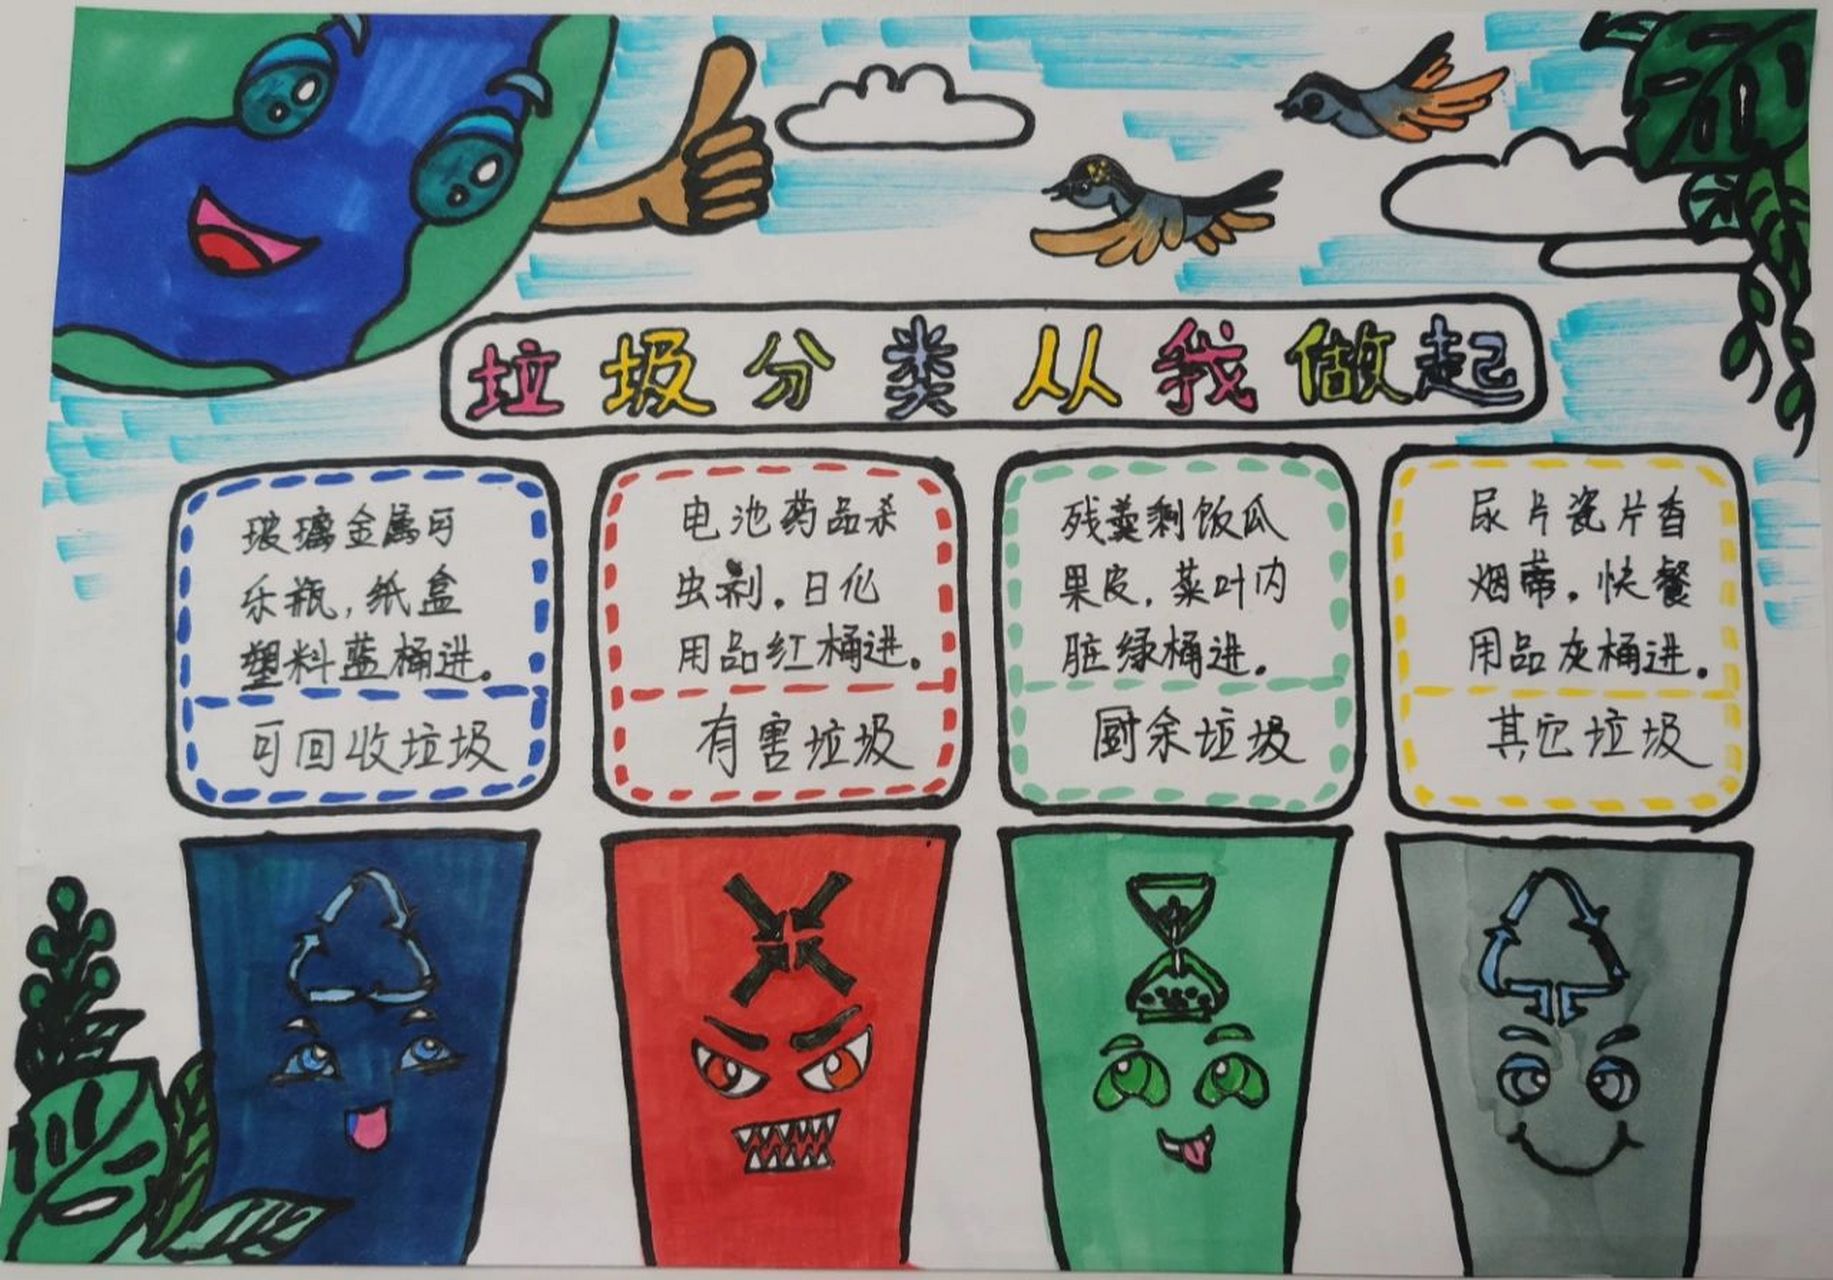 垃圾分类从我做起
玻璃金属可
乐瓶,纸盒
塑料蓝桶进。
可回收垃圾
电池药品杀
虫剂。日化
用品红桶进。
有害垃圾
残羹剩饭瓜
果皮,菜叶内
脏绿桶进。
厨余垃圾
尿片瓷片香
烟蒂。快餐
用品灰桶进。
其它垃圾